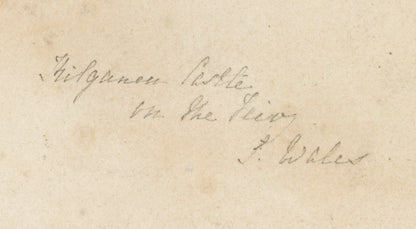 Kilgarren Castle
on the Teivy
S. Wales